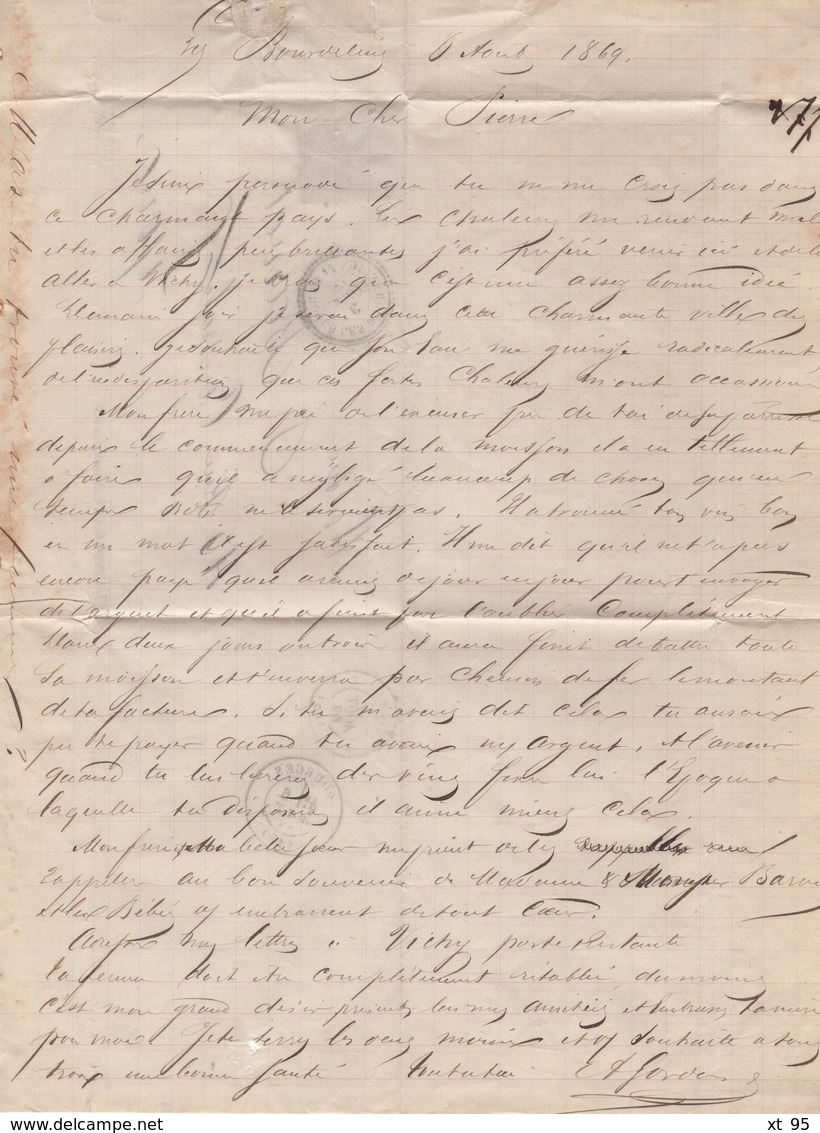 Bourdelins 6 Aout 1869.
Mon Cher Pierre
277
Je suis persuadé que tu ne me crois pas dans
ce charmant pays. Les chaleurs me rendant mal
et les affaires peu brillantes j'ai préféré venir ici et de la
aller à Vichy. Je crois que c'est une assez bonne idée.
Demain soir je serai dans cette charmante ville des
plaisirs. Je souhaite que son eau me guérisse radicalement
de l'indisposition que ces fortes chaleurs m'ont occasionné
Mon frère me prie de l'excuser près de toi
depuis le commencement de la moisson il a eu tellement
a faire qu'il a négligé beaucoup de choses qu'en
temps il a trouvé ton vin bon
en un mot il est satisfait. Il me dit qu'il ne t'a pas
encore payé qu'il a remis de jour en jour pour t'envoyer
de l'argent et qu'il a fini par l'oublier complètement
Dans deux jours ou trois il aura fini de battre toute
sa moisson et t'enverra par chemin de fer le montant
de ta facture. Si tu m'avais dit cela tu aurais
pu te payer quand tu avais mon argent. A l'avenir
quand tu lui livreras des vins fixe lui l'époque a
laquelle tu disposeras il aime mieux cela.
Mon frère Ma belle soeur me prient de les
rappeler au bon souvenir de Madame &
et les Bébés et embrassent de tout coeur.
Adresse mes lettres à Vichy poste restante
ta femme doit être complètement rétablie du moins
c'est mon grand désir présente lui mes amitiés et embrasse
pour moi. Je te serre les deux mains et souhaite a tous
trois une bonne santé Tout à toi
As tu trouvé
BOURGES
xt 95